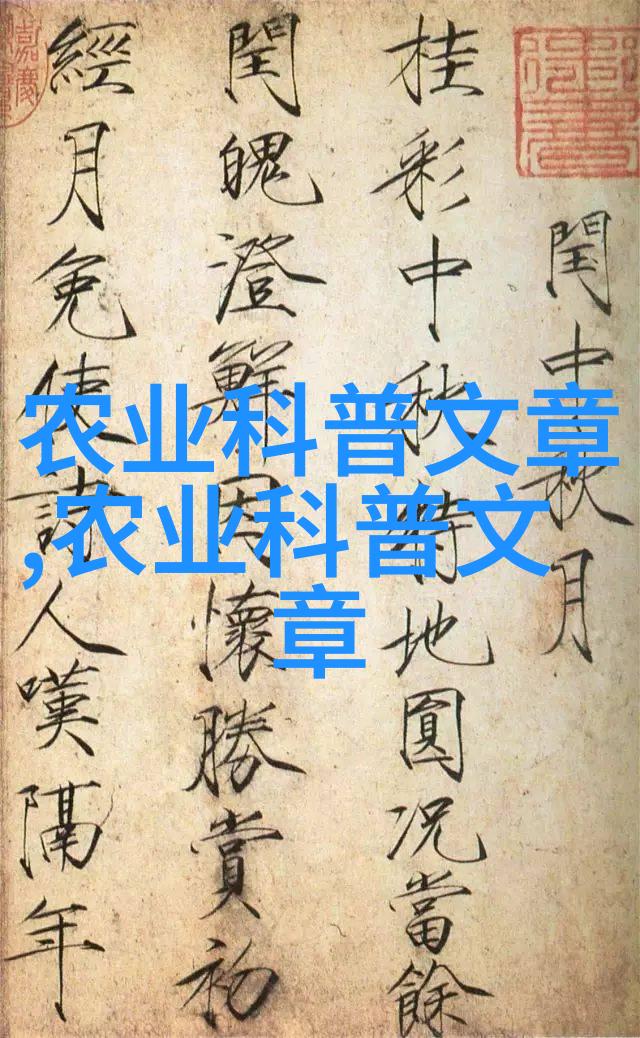 閏中秋月
桂彩中秋特地圓况當餘
閏魄澄鮮因懷勝賞初
經月免使詩人嘆隔年
农业科普文章
,农业科普文
章